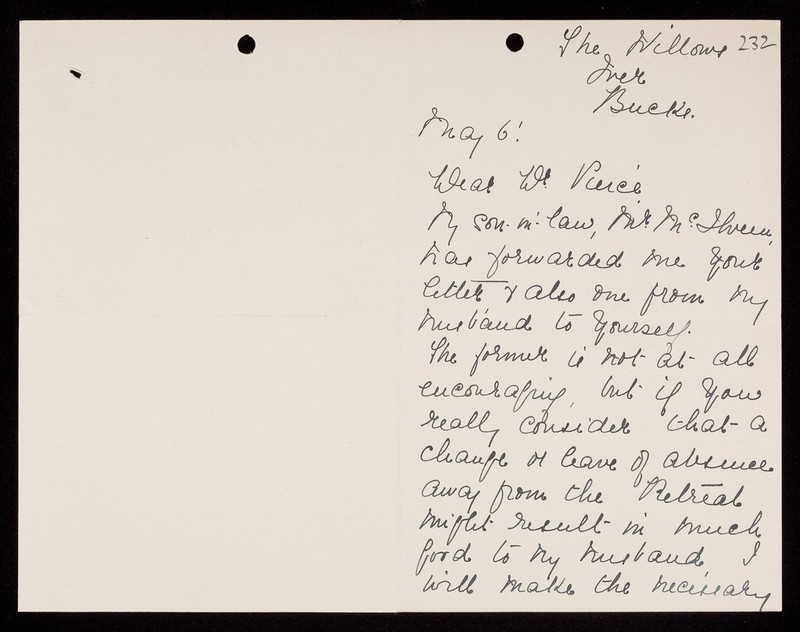 The Willows 232
Iver
Bucks.
May 6'.
Dear Dr. Pierce
My son-in-law, Mr. McIlveen,
has forwarded me your
letter & also one from my
husband to yourself.
The former is not at all
encouraging, but if you
really consider that a
change or leave of absence
away from the Retreat
might result in much
good to my husband, I
will make the necessary